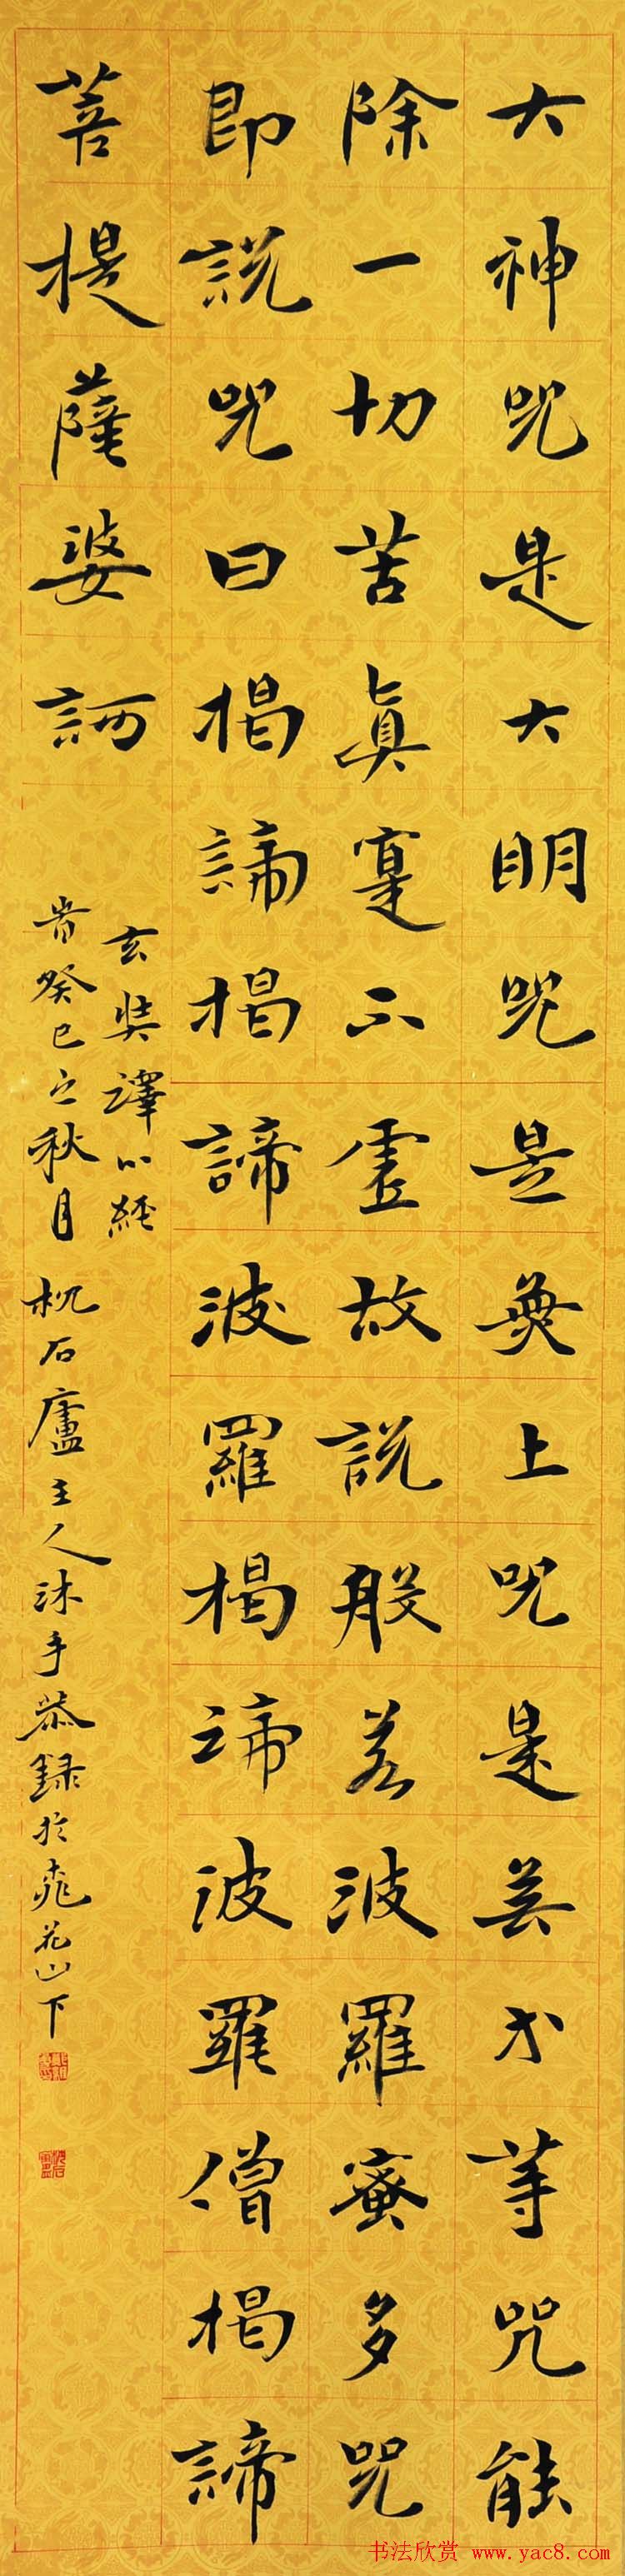 大神咒是大明咒是無上咒是無等等咒能
除一切苦真寔不虛故說般若波羅蜜多咒
即說咒曰揭諦揭諦波羅揭諦波羅僧揭諦
菩提薩婆訶
玄奘譯心經
旹癸巳之秋月 枕石廬主人沐手恭録於桃花山下
书法欣赏 www.yac8.com